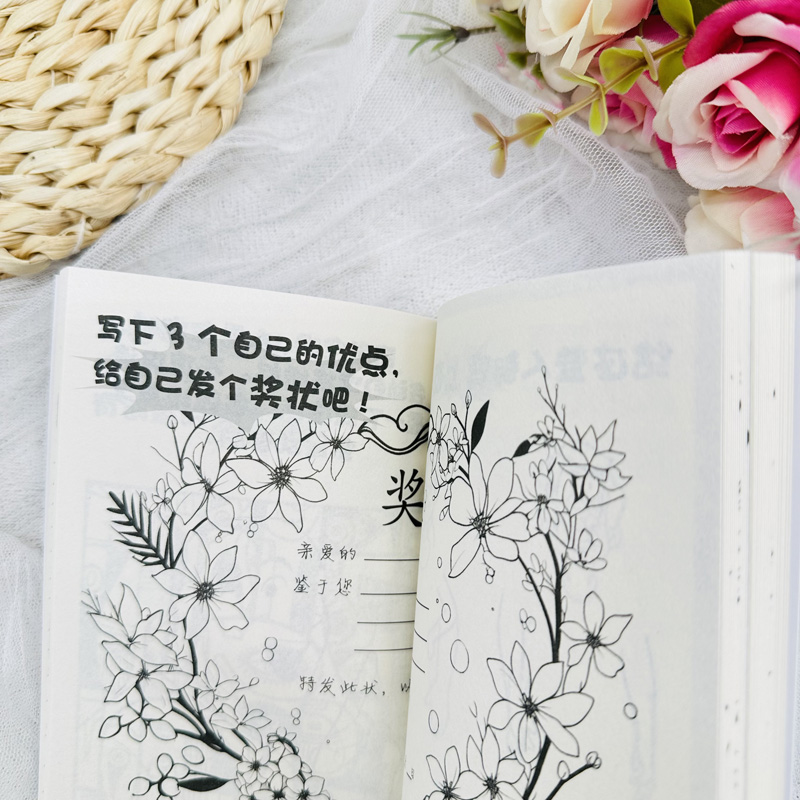 写下3个自己的优点，
给自己发个奖状吧！
奖
亲爱的
鉴于您
特发此状，